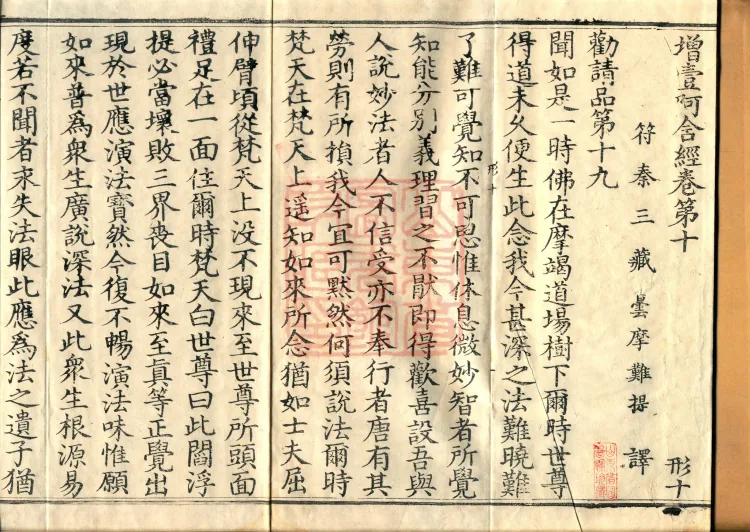 增壹阿含經卷第十
形十
符秦三藏曇摩難提譯
勸請品第十九
聞如是一時佛在摩竭道場樹下爾時世尊
得道未久便生此念我今甚深之法難曉難
了難可覺知不可思惟休息微妙智者所覺
形十
知能分別義理習之不猒即得歡喜設吾與
人說妙法者人不信受亦不奉行者唐有其
勞則有所損我今宜可黙然何須說法爾時
梵天在梵天上遥知如來所念猶如士夫屈
伸臂頃從梵天上没不現來至世尊所頭面
禮足在一面住爾時梵天白世尊曰此閻浮
提必當壞敗三界丧目如來至真等正覺出
現於世應演法寶然今復不暢演法味惟願
如來普為衆生廣說深法又此衆生根源易
度若不聞者永失法眼此應為法之遺子猶